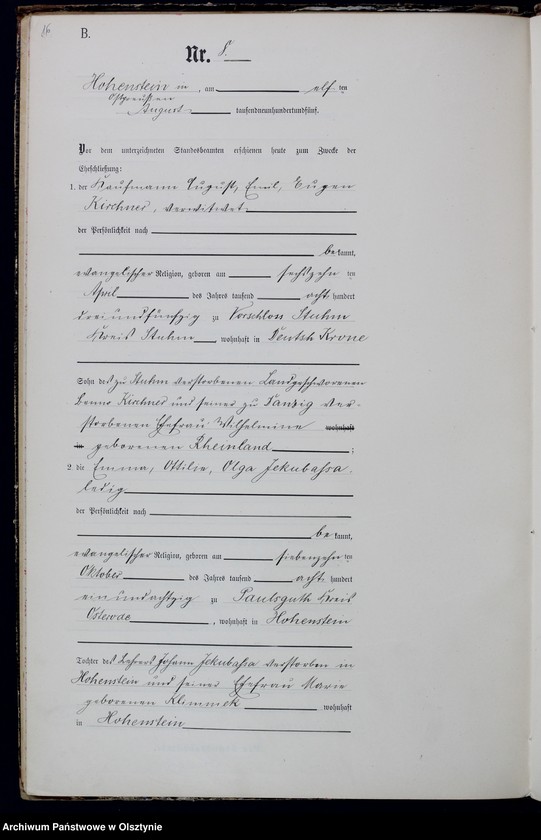 16
B.
Nr. 8.
Hohenstein in, am elf ten
Ostpreußen
August tausendneunhundertundfünf.
Vor dem unterzeichneten Standesbeamten erschienen heute zum Zwecke der
Eheschließung:
1. der Kaufmann August, Emil, Eugen
Kirchner, verwitwet
der Persönlichkeit nach
bekannt,
evangelischer Religion, geboren am sechszehn ten
April des Jahres tausend acht hundert
dreiundfünfzig zu Vorschloss Stuhm
Kreis Stuhm, wohnhaft in Deutsch Krone
Sohn des zu Stuhm verstorbenen Landgeschworenen
Benno Kirchner und seiner zu Danzig ver-
storbenen Ehefrau Wilhelmine wohnhaft
in geborenen Rheinland;
2. die Emma, Ottilie, Olga Jekubassa,
ledig
der Persönlichkeit nach
bekannt,
evangelischer Religion, geboren am siebenzehn ten
Oktober des Jahres tausend acht hundert
einundachtzig zu Paulsguth Kreis
Osterode, wohnhaft in Hohenstein
Tochter des Lehrers Johann Jekubassa verstorben in
Hohenstein und seiner Ehefrau Marie
geborenen Klimmek wohnhaft
in Hohenstein
Archiwum Państwowe w Olsztynie